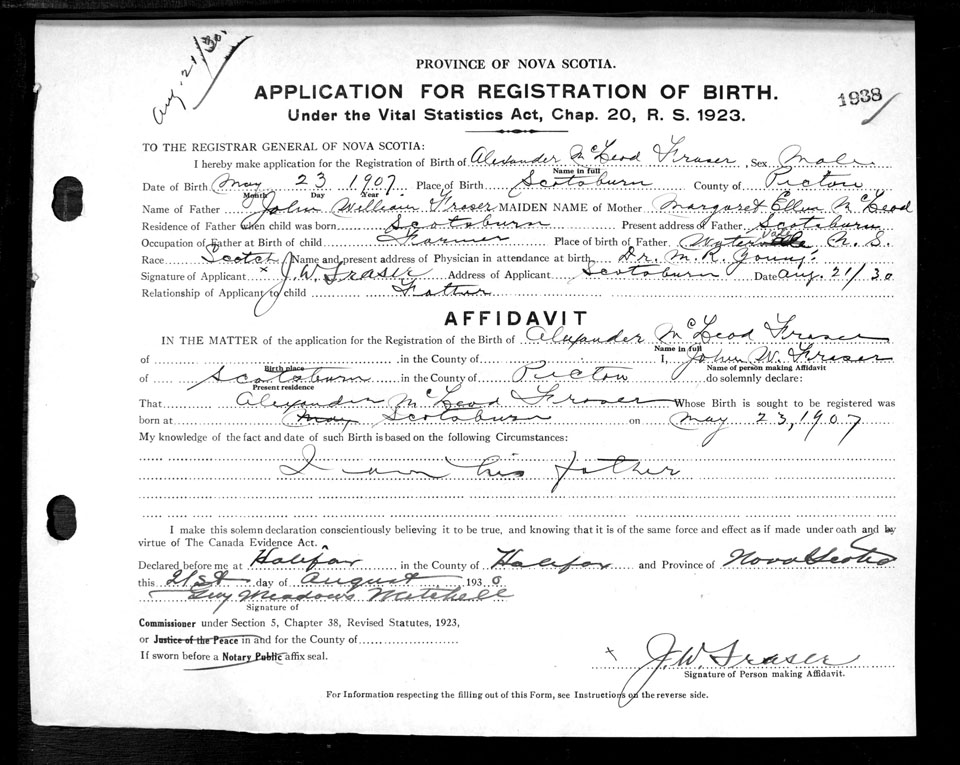 Aug. 21/30.
PROVINCE OF NOVA SCOTIA.
APPLICATION FOR REGISTRATION OF BIRTH.
1938
Under the Vital Statistics Act, Chap. 20, R. S. 1923.
TO THE REGISTRAR GENERAL OF NOVA SCOTIA:
I hereby make application for the Registration of Birth of Alexander McLeod Fraser, Sex Male.
Name in full
Date of Birth May 23 1907. Place of Birth Scotsburn County of Pictou
Month Day Year
Name of Father John William Fraser MAIDEN NAME of Mother Margaret Ellen McLeod
Residence of Father when child was born Scotsburn Present address of Father Scotsburn
Occupation of Father at Birth of child Farmer Place of birth of Father Water N. S.
Race Scotch Name and present address of Physician in attendance at birth Dr. M. R. Young.
Signature of Applicant x J. W. Fraser Address of Applicant Scotsburn Date Aug. 21/30
Relationship of Applicant to child Father
AFFIDAVIT
IN THE MATTER of the application for the Registration of the Birth of Alexander McLeod Fraser
Name in full
of in the County of I, John W. Fraser
Birth place Name of person making Affidavit
of Scotsburn in the County of Pictou do solemnly declare:
Present residence
That Alexander McLeod Fraser Whose Birth is sought to be registered was
born at May Scotsburn on May 23, 1907
My knowledge of the fact and date of such Birth is based on the following Circumstances:
I am his father
I make this solemn declaration conscientiously believing it to be true, and knowing that it is of the same force and effect as if made under oath and by
virtue of The Canada Evidence Act.
Declared before me at Halifax in the County of Halifax and Province of Nova Scotia
this 21st day of August 1930
Guy Meadows Mitchell
Signature of
Commissioner under Section 5, Chapter 38, Revised Statutes, 1923,
or Justice of the Peace in and for the County of
If sworn before a Notary Public affix seal.
x J. W. Fraser
Signature of Person making Affidavit.
For Information respecting the filling out of this Form, see Instructions on the reverse side.